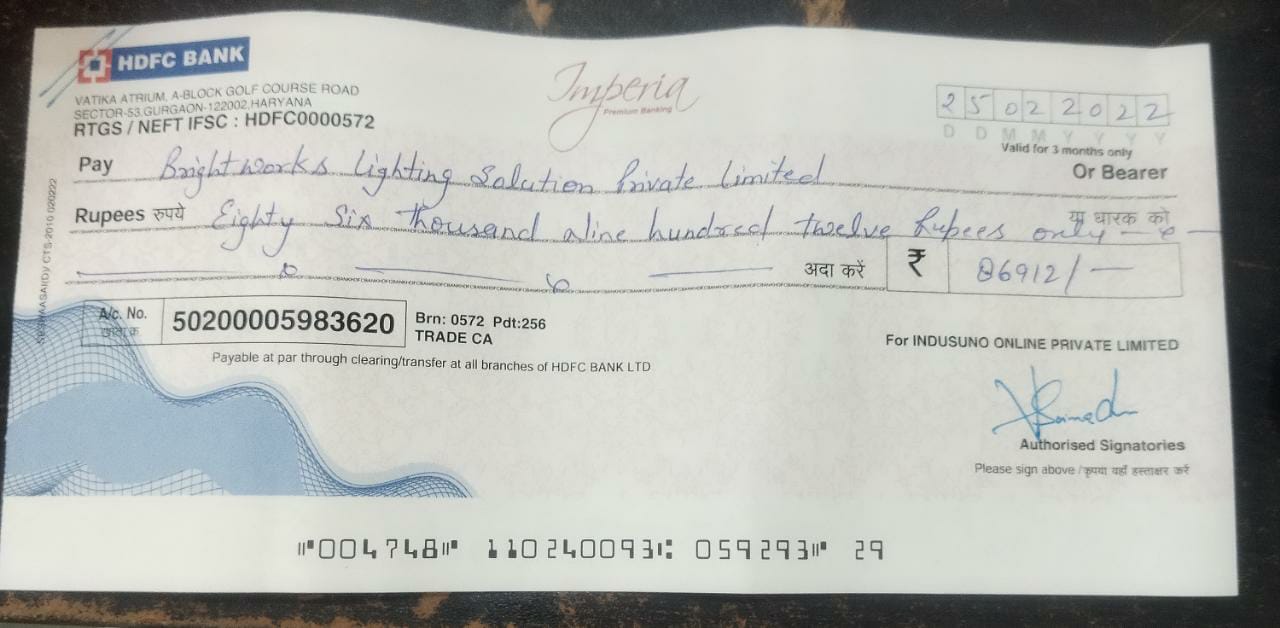 HDFC BANK
VATIKA ATRIUM, A-BLOCK GOLF COURSE ROAD
SECTOR-53,GURGAON-122002,HARYANA
RTGS / NEFT IFSC : HDFC0000572
Imperia
Premium Banking
2 5 0 2 2 0 2 2
D D M M Y Y Y Y
Valid for 3 months only
Pay Brightworks Lighting Solution Private Limited Or Bearer
या धारक को
Rupees रुपये Eighty Six thousand Nine hundred twelve Rupees only
अदा करें ₹ 86912/-
A/c. No. 50200005983620 Brn: 0572 Pdt:256
TRADE CA
Payable at par through clearing/transfer at all branches of HDFC BANK LTD
For INDUSUNO ONLINE PRIVATE LIMITED
Authorised Signatories
Please sign above / कृपया यहाँ हस्ताक्षर करें
⑈004748⑈ 110240093⑆ 059293⑈ 29